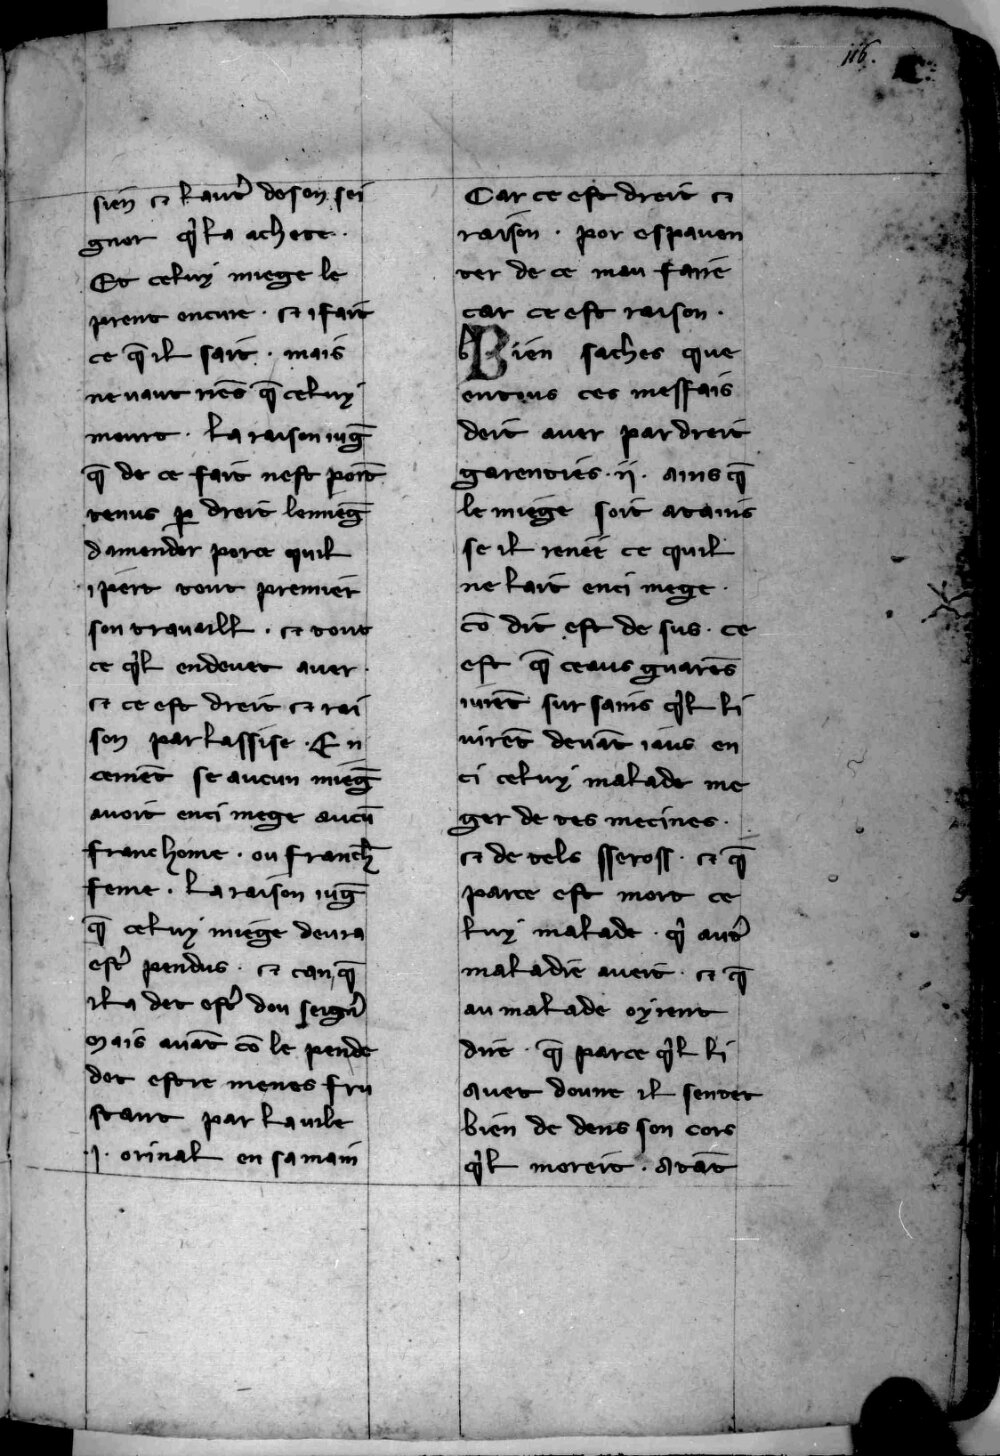 116.
sien ⁊ lautˀ de son sei
gnor qͥl la achete.
Et celuy miege le
prent en cure. ⁊ i fait
ce q̄ il sait. mais
ne vaut riēs q̄ celuy
meurt. la raison iuḡ
q̄ de ce fait nest point
tenus ꝑ droit le mieḡ
damender porce quil
i pert tout premier
son travaill. ⁊ tout
ce qͥl en devet aver.
⁊ ce est dreit ⁊ rai
son par lassise. En
cemēt se aucun mieḡ
avoit enci mege aucū
franc home. ou franch̄
feme. la raison iuḡ
q̄ celuy miege devra
estˀ pendus. ⁊ can q̄
il a det estˀ dou seignˀ
Mais avāt cō le pende
det estre menes fru
stant par la vile
.j. orinal en sa main
Car ce est dreit ⁊
raison. por espaven
ter de ce mau faire
car ce est raison.
Bien saches que
en tous ces meffais
deit aver par dreit
garenties .ij. ains q̄
le miege soit atains
se il renēe ce quil
ne lait enci mege.
cō dit est de sus. ce
est q̄ ceaus guarēs
iurēt sur sains qͥl li
virēt devāt iaus en
ci celuy malade me
ger de tes mecines.
⁊ de tels sseross. ⁊ q̄
par ce est mort ce
luy malade. qͥ autˀ
maladie aveit. ⁊ q̄
au malade oyient
dire. q̄ par ce qͥl li
avet doune il sentet
bien de dens son cors
qͥl moreit. Atāt